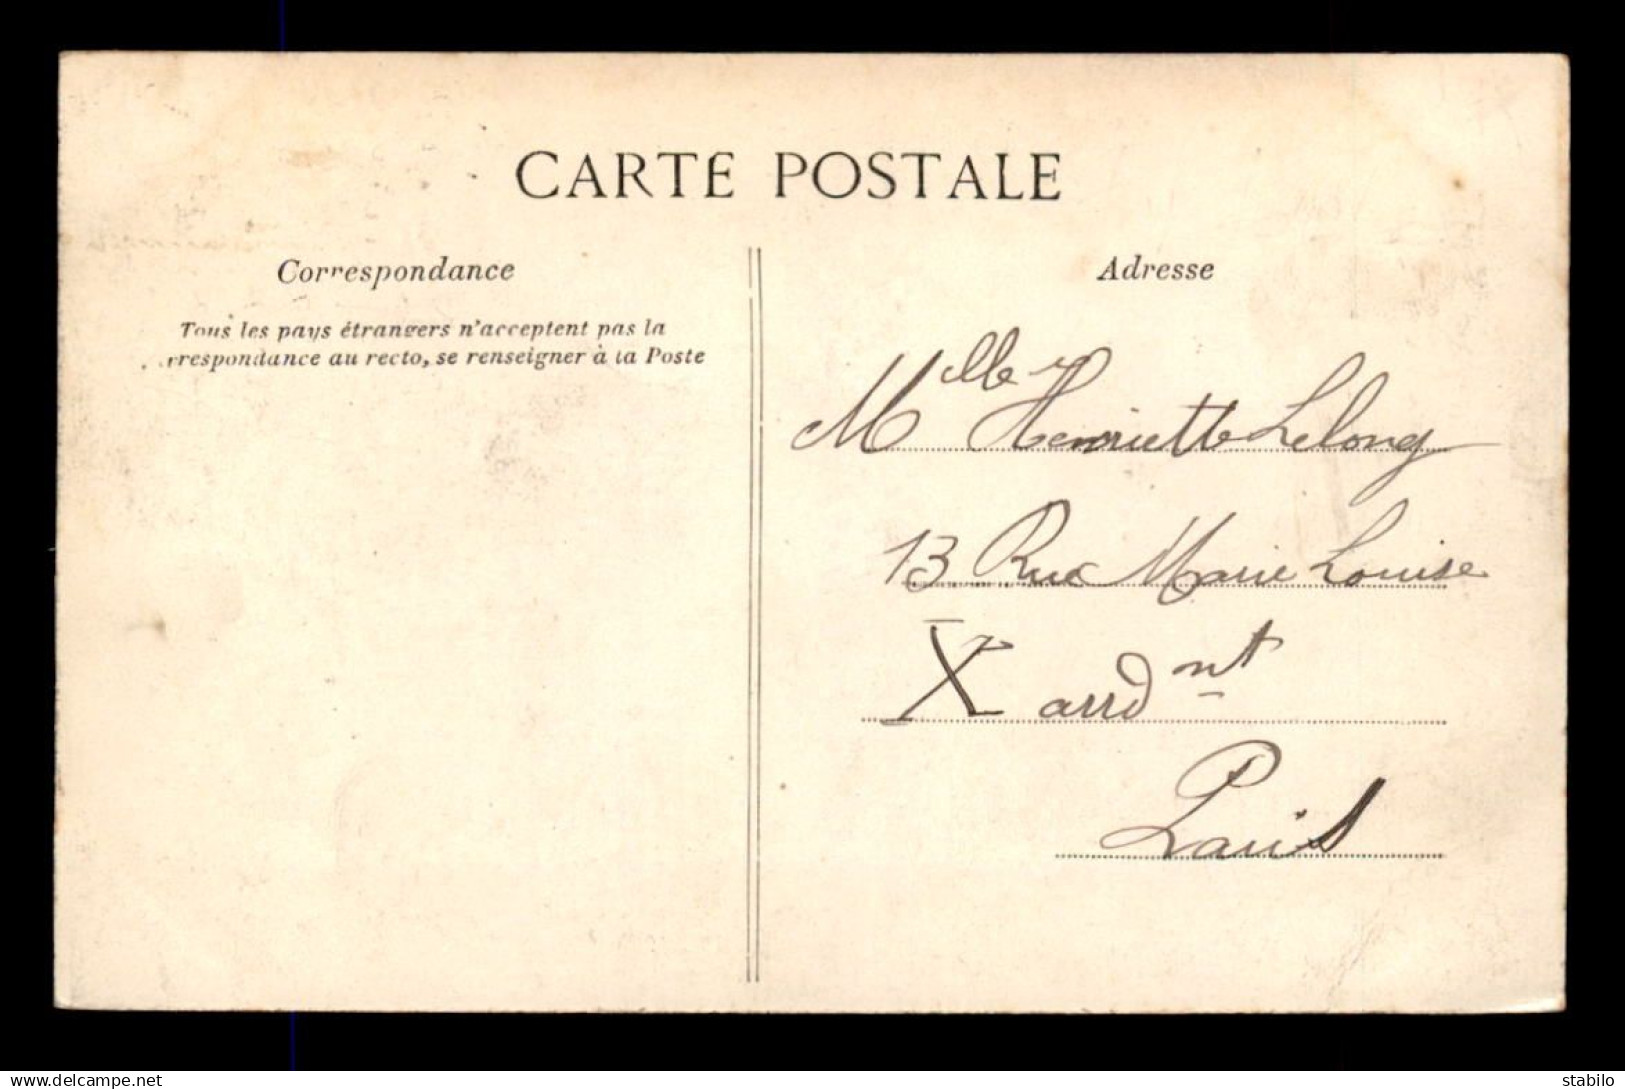 CARTE POSTALE
Correspondance
Tous les pays étrangers n'acceptent pas la
rrespondance au recto, se renseigner à la Poste
Adresse
Mlle Henriette Lelong
13 Rue Marie Louise
X arrdnt
Paris
www.delcampe.net
stabilo